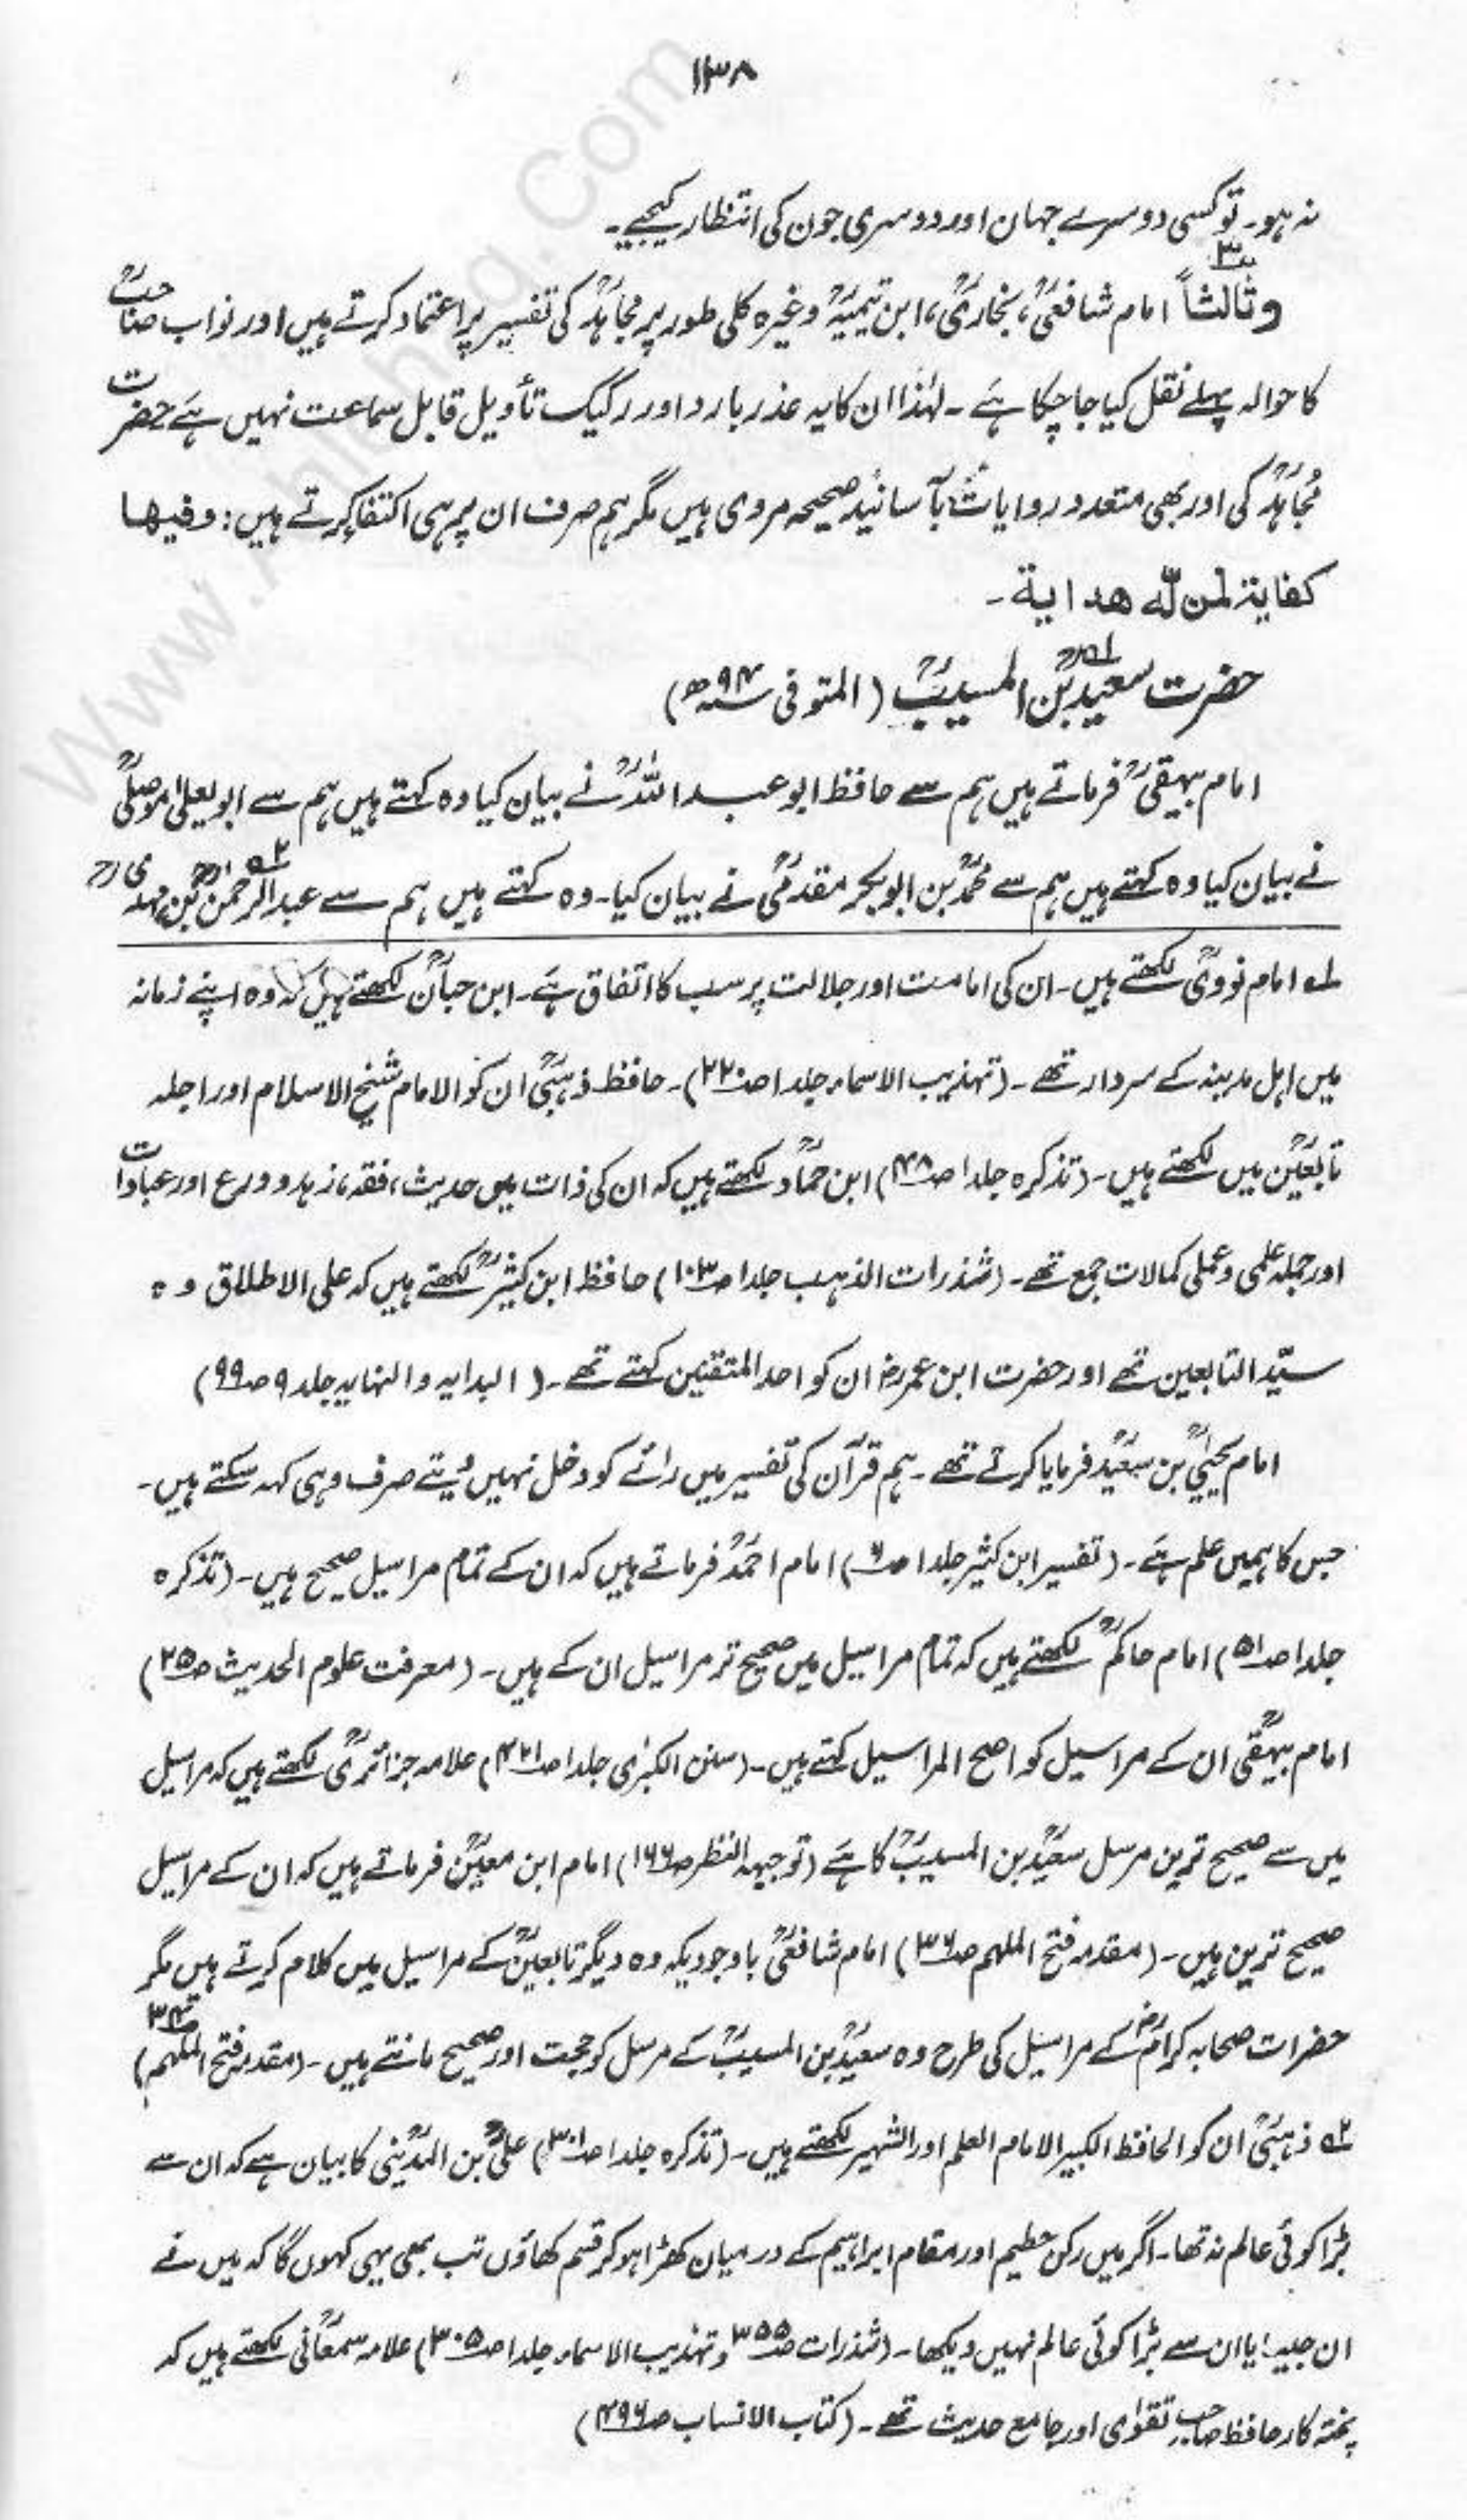 ۱۳۸
نہ ہو۔ تو کسی دوسرے جہان اور دوسری جون کی انتظار کیجیے۔
وثالثاً امام شافعیؒ، بخاریؒ، ابن تیمیہؒ وغیرہ کلی طور پر مجاہدؒ کی تفسیر پر اعتماد کرتے ہیں اور نواب صاحبؒ
کا حوالہ پہلے نقل کیا جا چکا ہے۔ لہٰذا ان کا یہ عذر بارد اور رکیک تأویل قابل سماعت نہیں ہے حضرت
مجاہدؒ کی اور بھی متعدد روایات بآسانید صحیحہ مروی ہیں مگر ہم صرف ان پر ہی اکتفا کرتے ہیں: وفیھا
کفایۃ لمن لہ ھدایۃ۔
حضرت سعیدؒ بن المسیبؒ (المتوفی سنہ ۹۴ھ) لہ
امام بیہقیؒ فرماتے ہیں ہم سے حافظ ابو عبداللہؒ نے بیان کیا وہ کہتے ہیں ہم سے ابو یعلیٰ موصلیؒ
نے بیان کیا وہ کہتے ہیں ہم سے محمدؒ بن ابوبکر مقدمیؒ نے بیان کیا۔ وہ کہتے ہیں ہم سے عبدالرحمٰنؒ بن مہدیؒ ۲ہ
لہ امام نوویؒ لکھتے ہیں۔ ان کی امامت اور جلالت پر سب کا اتفاق ہے۔ ابن حبانؒ لکھتے ہیں کہ وہ اپنے زمانہ
میں اہل مدینہ کے سردار تھے۔ (تہذیب الاسماء جلد ا صـ۲۲۰)۔ حافظ ذہبیؒ ان کو الامام شیخ الاسلام اور اجلہ
تابعینؒ میں لکھتے ہیں۔ (تذکرہ جلد ا صـ۴۸) ابن حمادؒ لکھتے ہیں کہ ان کی ذات میں حدیث، فقہ، زہد و ورع اور عبادات
اور جملہ علمی و عملی کمالات جمع تھے۔ (شذرات الذہب جلد ا صـ۱۰۳) حافظ ابن کثیرؒ لکھتے ہیں کہ علی الاطلاق وہ
سیّد التابعین تھے اور حضرت ابن عمرؓ ان کو احد المتقین کہتے تھے۔ (البدایہ والنہایہ جلد ۹ صـ۹۹)
امام یحییٰؒ بن سعیدؒ فرمایا کرتے تھے۔ ہم قرآن کی تفسیر میں رائے کو دخل نہیں دیتے صرف وہی کہہ سکتے ہیں۔
جس کا ہمیں علم ہے۔ (تفسیر ابن کثیر جلد ا صـ۶) امام احمدؒ فرماتے ہیں کہ ان کے تمام مراسیل صحیح ہیں۔ (تذکرہ
جلد ا صـ۵۱) امام حاکمؒ لکھتے ہیں کہ تمام مراسیل میں صحیح تر مراسیل ان کے ہیں۔ (معرفت علوم الحدیث صـ۲۵)
امام بیہقیؒ ان کے مراسیل کو اصح المراسیل کہتے ہیں۔ (سنن الکبرٰی جلد ا صـ۴۲۱) علامہ جزائریؒ لکھتے ہیں کہ مراسیل
میں سے صحیح ترین مرسل سعیدؒ بن المسیبؒ کا ہے (توجیہہ النظر صـ۱۶۶) امام ابن معینؒ فرماتے ہیں کہ ان کے مراسیل
صحیح ترین ہیں۔ (مقدمہ فتح الملہم صـ۳۶) امام شافعیؒ باوجودیکہ وہ دیگر تابعینؒ کے مراسیل میں کلام کرتے ہیں مگر
حضرات صحابہ کرامؓ کے مراسیل کی طرح وہ سعیدؒ بن المسیبؒ کے مرسل کو حجت اور صحیح مانتے ہیں۔ (مقدمہ فتح الملہم صـ۳۴)
۲ہ ذہبیؒ ان کو الحافظ الکبیر الامام العلم اور الشہیر لکھتے ہیں۔ (تذکرہ جلد ا صـ۳۰۱) علیؒ بن المدینی کا بیان ہے کہ ان سے
بڑا کوئی عالم نہ تھا۔ اگر میں رکن حطیم اور مقام ابراہیم کے درمیان کھڑا ہو کر قسم کھاؤں تب بھی یہی کہوں گا کہ میں نے
ان جیسا یا ان سے بڑا کوئی عالم نہیں دیکھا۔ (شذرات صـ۳۵۵ و تہذیب الاسماء جلد ا صـ۳۰۵) علامہ سمعانیؒ لکھتے ہیں کہ
پختہ کار حافظ صاحب تقوٰی اور جامع حدیث تھے۔ (کتاب الانساب صـ۴۹۶)